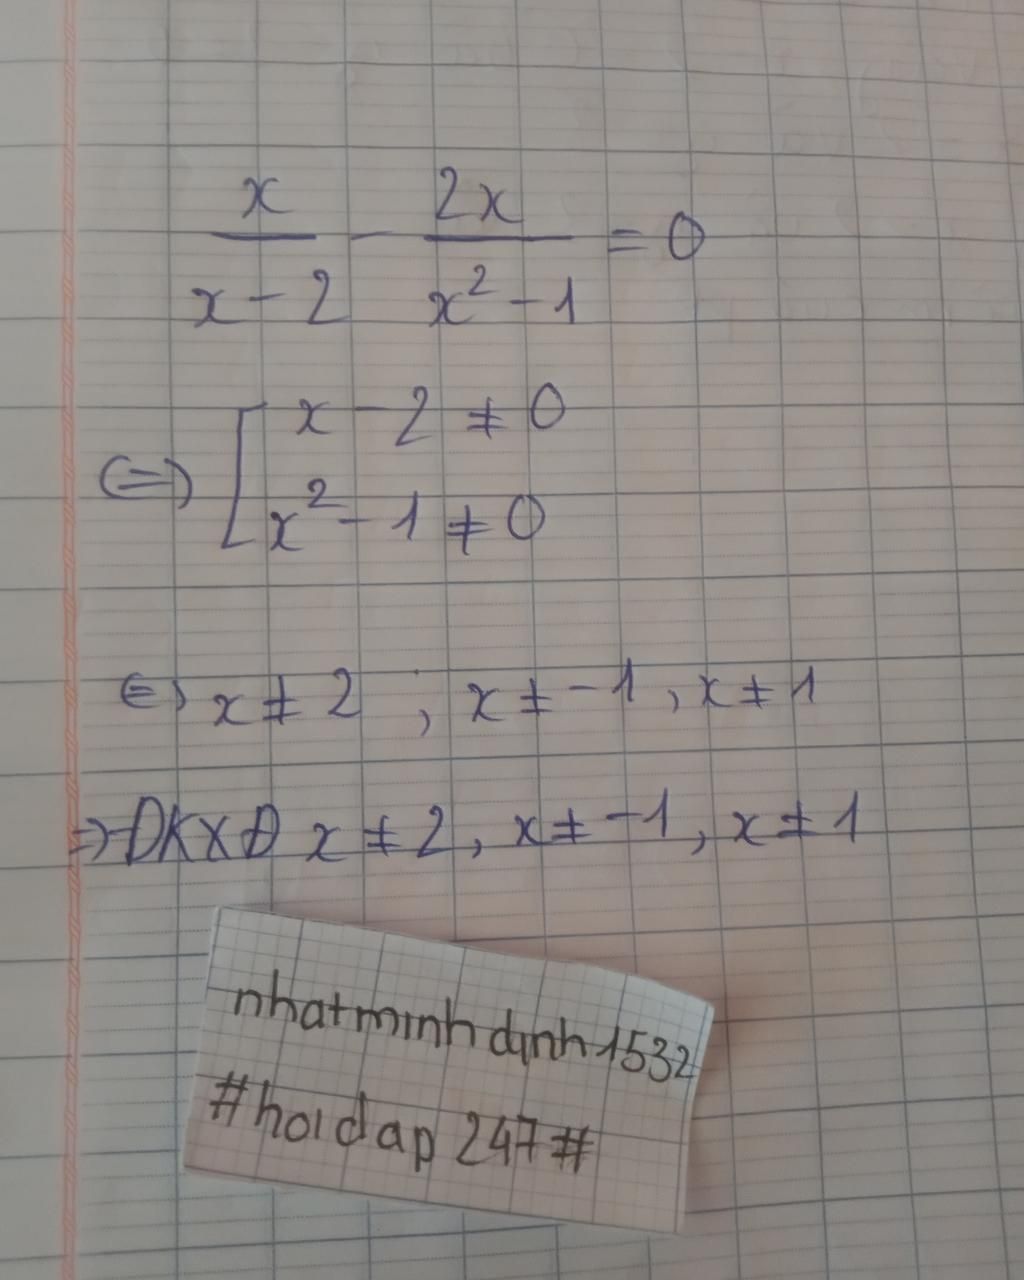 x/(x-2) - 2x/(x²-1) = 0
(=) [ x - 2 ≠ 0
x² - 1 ≠ 0
(=) x ≠ 2 ; x ≠ -1 , x ≠ 1
=> ĐKXĐ x ≠ 2 , x ≠ -1 , x ≠ 1
nhatminhdinh1532
#hoidap247#